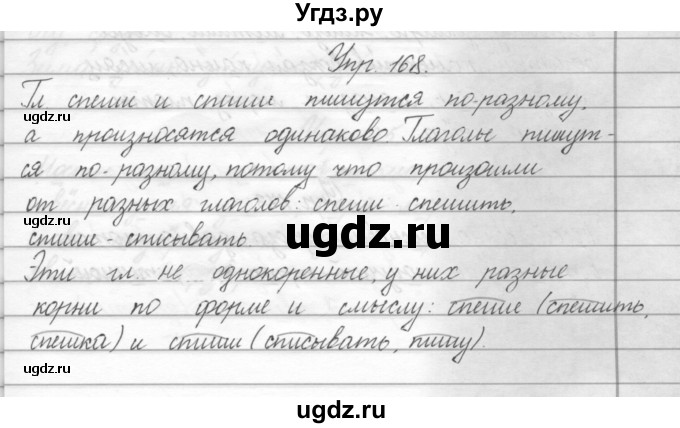 Угдз.ру
Упр. 168.
Гл спеши и спиши пишутся по-разному,
а произносятся одинаково. Глаголы пишут-
ся по-разному, потому что произошли
от разных глаголов: спеши - спешить,
ugdz.ru
ugdz.ru
спиши - списывать
Эти гл. не однокоренные, у них разные
корни по форме и смыслу: спеши (спешить,
спешка) и спиши (списывать, пишу).
ugdz.ru
ugdz.ru